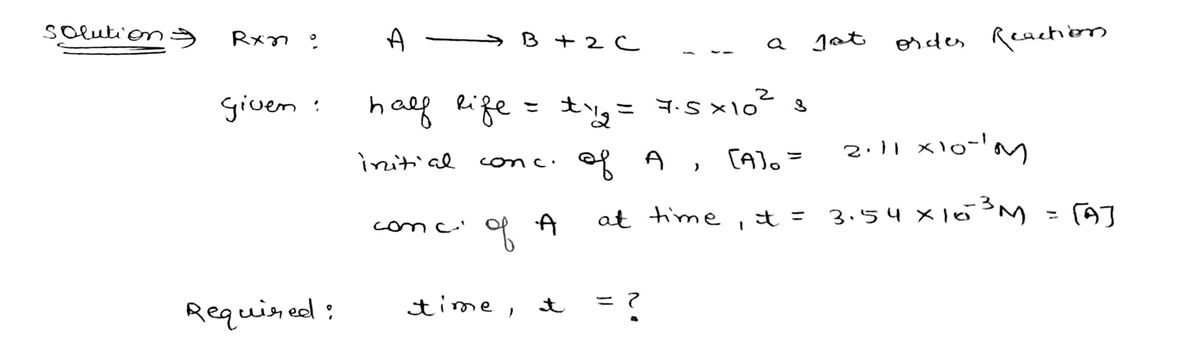 Solution ⇒ Rxn : A ⟶ B + 2C - -- a 1st order Reaction
given : half life = t1/2 = 7.5 ×10² s
initial conc. of A , [A]₀ = 2.11 ×10⁻¹ M
conc. of A at time , t = 3.54 ×10⁻³ M = [A]
Required : time , t = ?